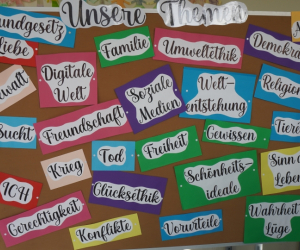 Unsere Themen
Grundgesetz
Liebe
Familie
Umweltethik
Demokra
Digitale
Welt
Soziale
Medien
Welt-
entstehung
Religion
Sucht
Freundschaft
Freiheit
Gewissen
Tiere
Krieg
Tod
Schönheits-
ideale
Sinn
Leben
ICH
Glücksethik
Gerechtigkeit
Konflikte
Vorurteile
Wahrheit
Lüge